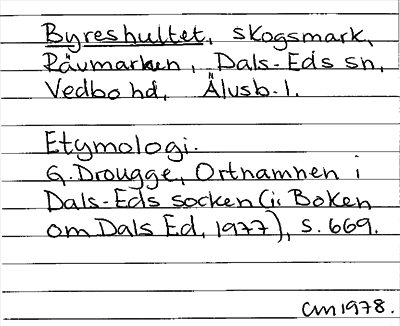 Byreshultet, skogsmark,
Rävmarken, Dals-Eds sn,
Vedbo hd, Älvsb. l.
Etymologi.
G. Drougge, Ortnamnen i
Dals-Eds socken (i: Boken
om Dals Ed, 1977), s. 669.
CM 1978.